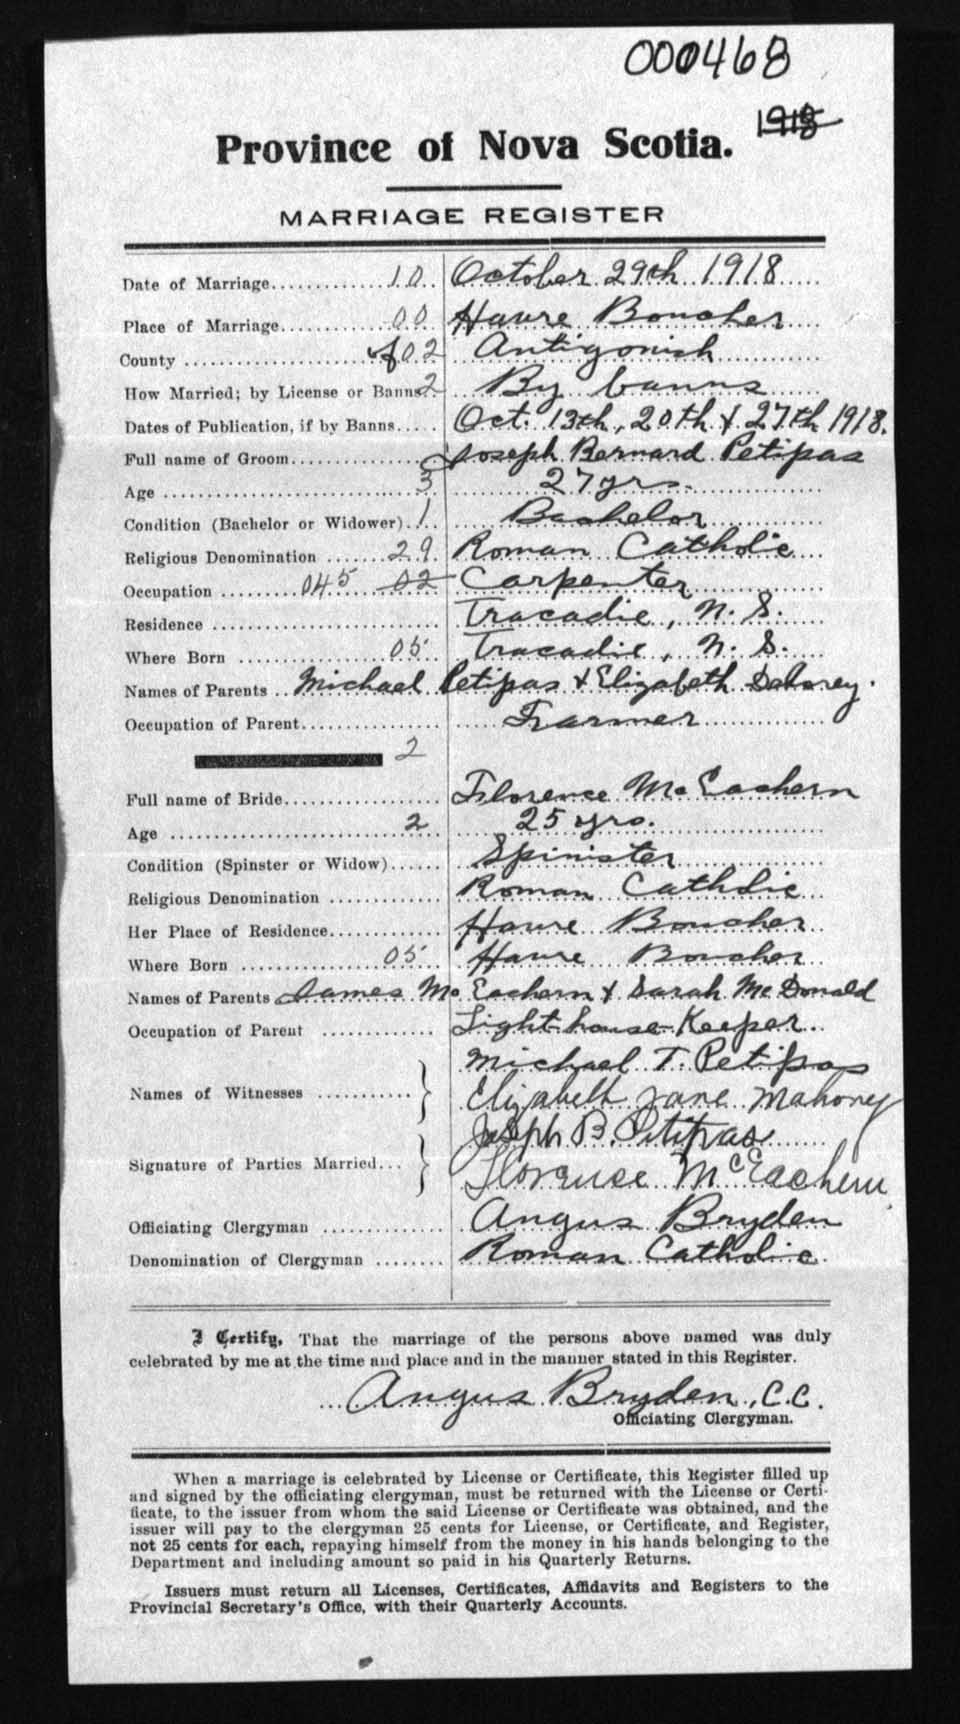 000468
1918
Province of Nova Scotia.
MARRIAGE REGISTER
Date of Marriage............. 10 October 29th 1918
Place of Marriage............ 00 Havre Boucher
County .................... of 02 Antigonish
How Married; by License or Banns 2 By banns
Dates of Publication, if by Banns..... Oct. 13th, 20th & 27th 1918.
Full name of Groom................ Joseph Bernard Petipas
Age ........................... 3 27 yrs.
Condition (Bachelor or Widower). 1 Bachelor
Religious Denomination ....... 29 Roman Catholic
Occupation ......... 045 02 Carpenter
Residence ........................... Tracadie, N. S.
Where Born ................ 05 Tracadie, N. S.
Names of Parents .. Michael Petipas & Elizabeth
Occupation of Parent................. Farmer
2
Full name of Bride.................. Florence McEachern
Age ........................... 2 25 yrs.
Condition (Spinster or Widow)...... Spinister
Religious Denomination ............. Roman Catholic
Her Place of Residence............. Havre Boucher
Where Born ................ 05 Havre Boucher
Names of Parents James McEachern & Sarah McDonald
Occupation of Parent ............. Light house Keeper
Michael T. Petipas
Names of Witnesses ........... Elizabeth Jane Mahoney
Joseph B. Petitpas
Signature of Parties Married... Florence McEachern
Officiating Clergyman .............. Angus Bryden
Denomination of Clergyman ........ Roman Catholic
I Certify, That the marriage of the persons above named was duly
celebrated by me at the time and place and in the manner stated in this Register.
Angus Bryden, C.C.
Officiating Clergyman.
When a marriage is celebrated by License or Certificate, this Register filled up
and signed by the officiating clergyman, must be returned with the License or Certi-
ficate, to the issuer from whom the said License or Certificate was obtained, and the
issuer will pay to the clergyman 25 cents for License, or Certificate, and Register,
not 25 cents for each, repaying himself from the money in his hands belonging to the
Department and including amount so paid in his Quarterly Returns.
Issuers must return all Licenses, Certificates, Affidavits and Registers to the
Provincial Secretary's Office, with their Quarterly Accounts.